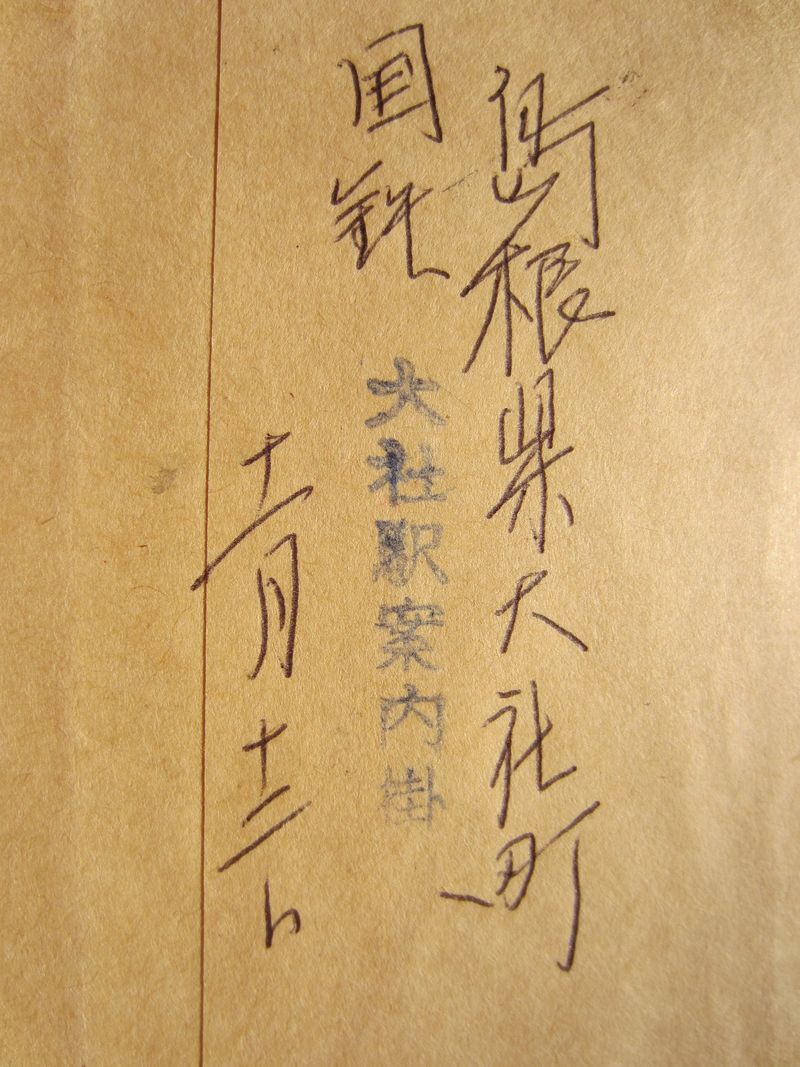 島根県大社町
国鉄 大社駅案内掛
十一月十二日